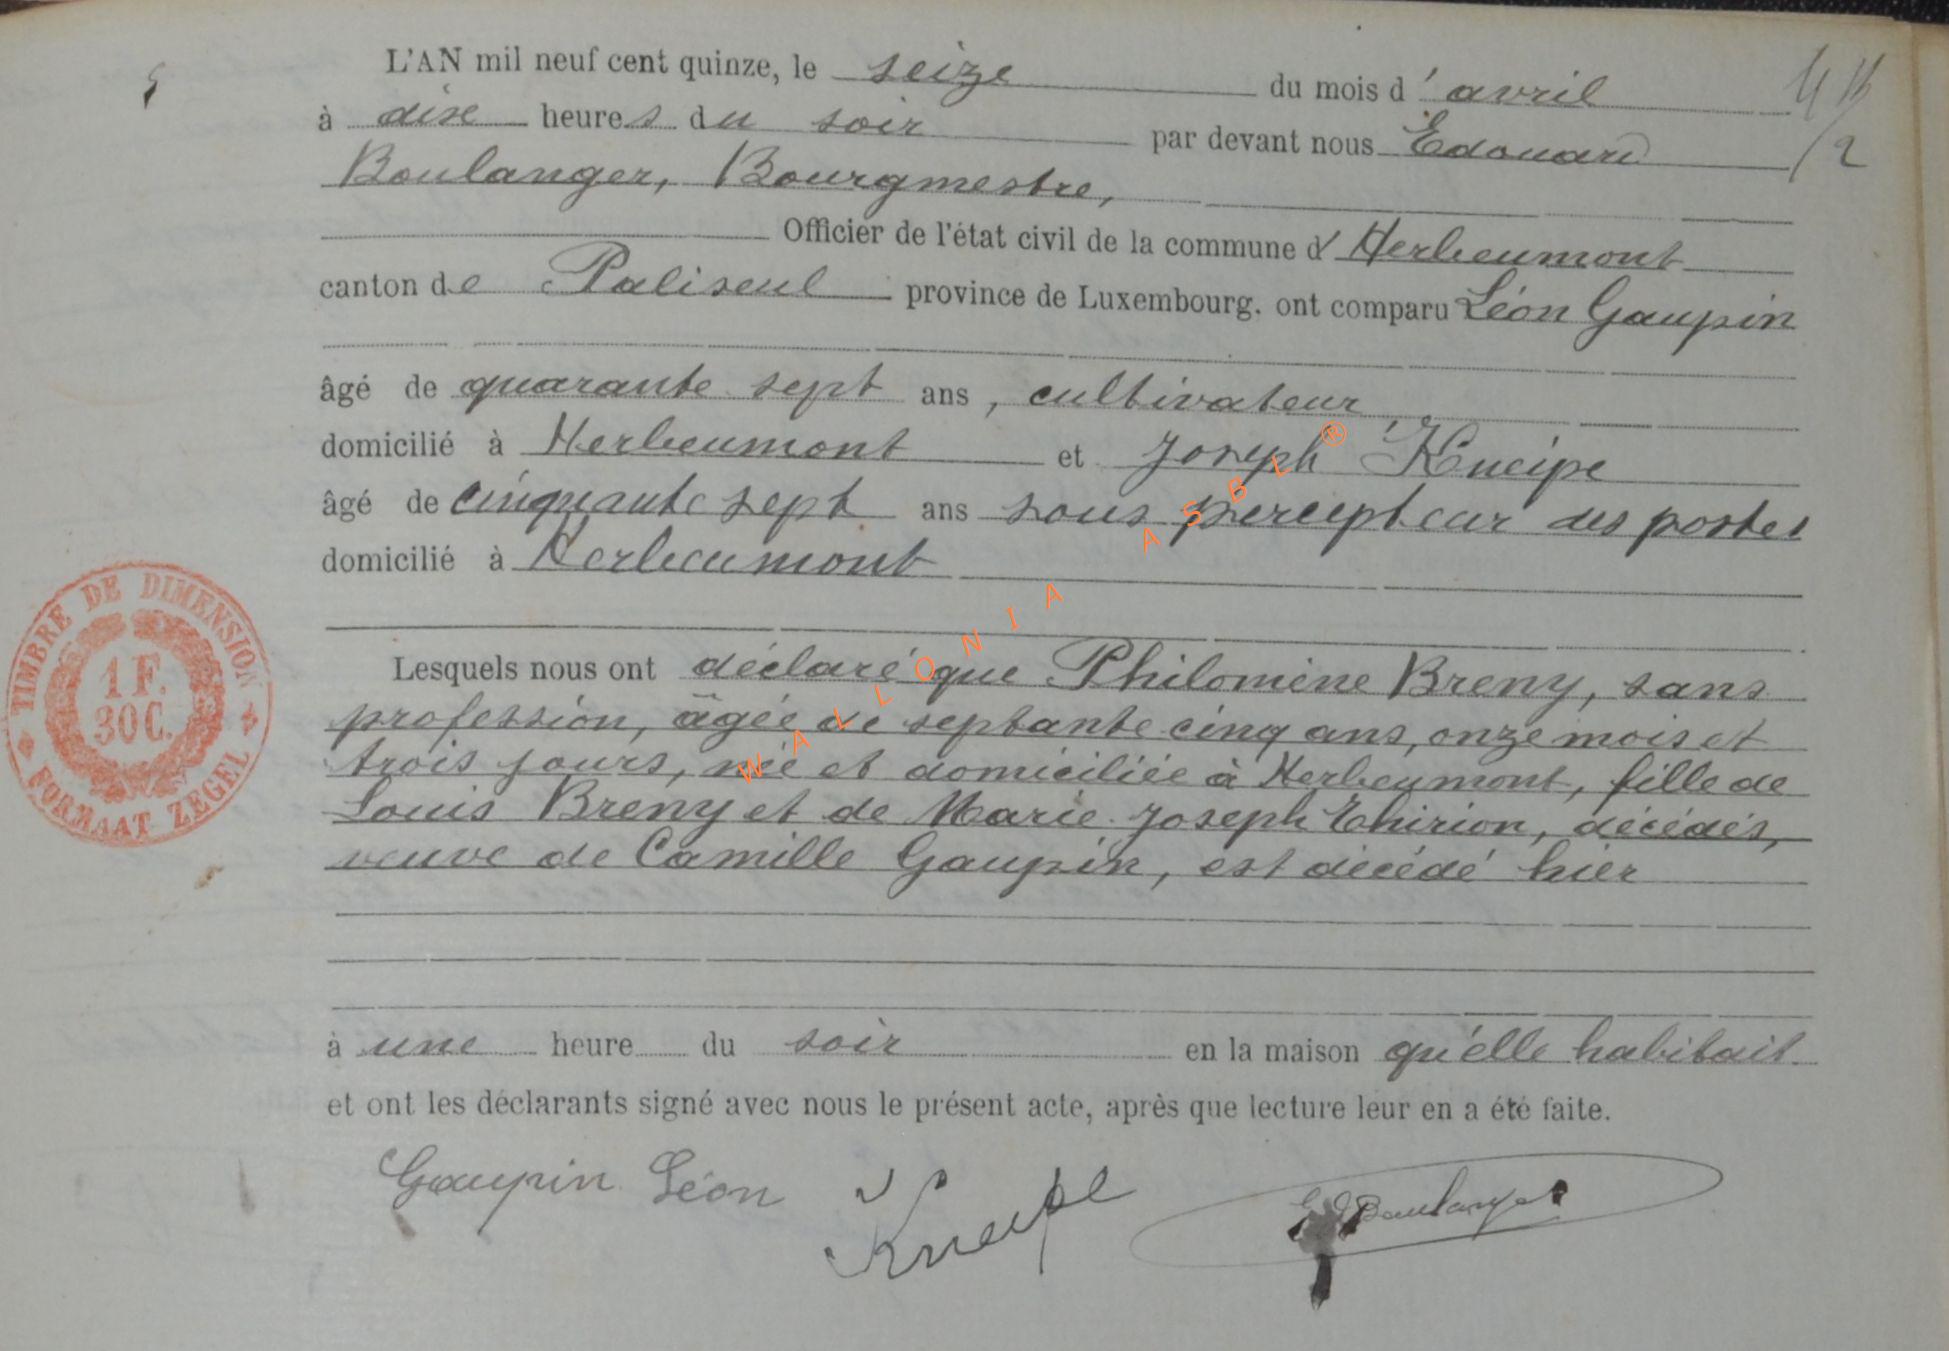 L'AN mil neuf cent quinze, le seize du mois d'avril
à dix heures du soir par devant nous Edouard
Boulanger, Bourgmestre,
Officier de l'état civil de la commune d'Herbeumont
canton de Paliseul province de Luxembourg, ont comparu Léon Gaupin
âgé de quarante sept ans, cultivateur,
domicilié à Herbeumont et Joseph Kneipe
âgé de cinquante sept ans sous percepteur des postes
domicilié à Herbeumont
Lesquels nous ont déclaré que Philomène Breny, sans
profession, âgée de septante cinq ans, onze mois et
trois jours, née et domiciliée à Herbeumont, fille de
Louis Breny et de Marie Joseph Thirion, décédés,
veuve de Camille Gaupin, est décédé hier
à une heure du soir en la maison qu'elle habitait
et ont les déclarants signé avec nous le présent acte, après que lecture leur en a été faite.
Gaupin Léon Kneipe Ed Boulanger
TIMBRE DE DIMENSION
1 F.
30 C.
FORMAAT ZEGEL
WALLONIA ASBL®